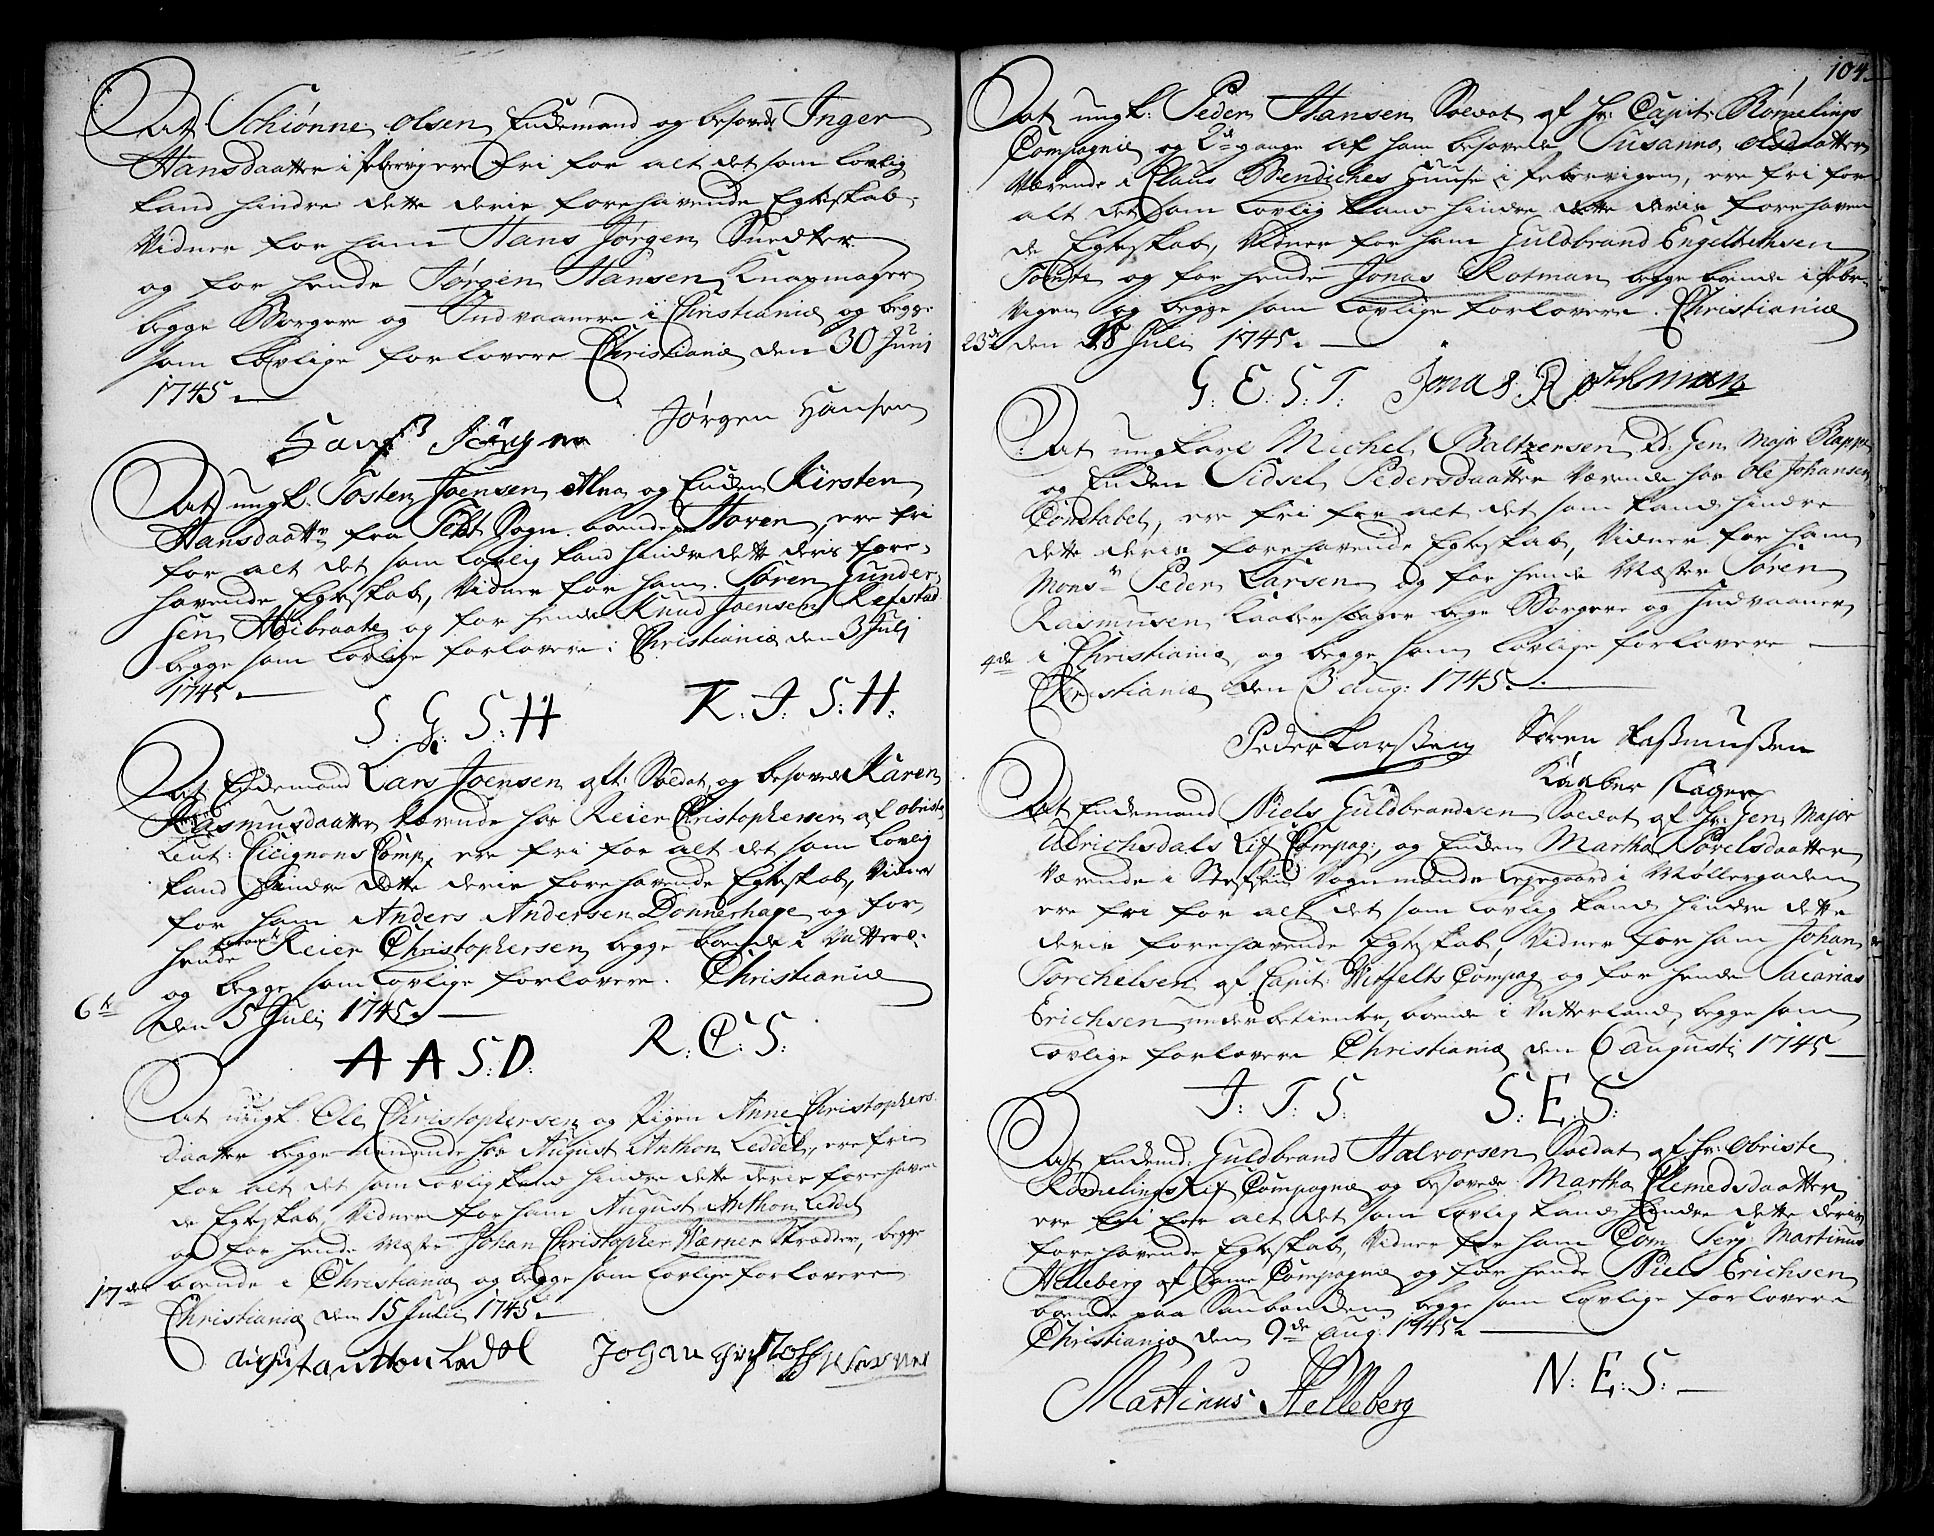 At Schiønne Olsen Enckemand og besovede Inger
Hansdaatter i Pebervig ere fri for alt det som lovlig
kand hindre dette deris forehavende Egteskab,
Vidner for ham Hans Jørgen Snedker
og for hende Jørgen Hansen Knapmager
begge Borgere og Indvaanere i Christiania og begge
som lovlige forlovere Christiania den 30 Junj
1745.
Hans Jörgen Jørgen Hansen
At ungk. Tosten Joensen Alna og Enken Kirsten
Hansdaattr fra Sogn boende Hoven, ere fri
for alt det som lovlig kand hindre dette deris fore-
havende Egteskab, Vidner for ham Søren Gunder
sen Høibraaten og for hende Knud Joensen Refstad
begge som lovlige forlovere: Christiania den 3 Julj
1745.
S. G. S: H K. J. S: H.
At Enckemand Lars Joensen aft: Soldat, og besovede Karen
Rasmusdaatter værende hos Reier Christophersen af Obriste
Leut: Cicignons Comp, ere fri for alt det som lovlig
kand hindre dette deris forehavende Egteskab, Vidner
for ham Anders Andersen Donnerhage og for
hende Reier Christophersen begge boende i Vatterl:
og begge som lovlige forlovere. Christiania
6te den 5 Juli 1745.
A A S: D. R. C. S:
At ungk. Ole Christophersen og Pigen Anne Christophers
daatter begge tienende hos August Anthon Leddel, ere fri
for alt det som lovlig kand hindre dette deris forehaven
de Egteskab, Vidner for ham August Anthon Leddel
og for hende Mester Johan Christopher Værner Skrædder, begge
17de boende i Christiania og begge som lovlige forlovere
Christiania den 15 Julii 1745.
August anthon Ledel Johan Christoff Werner
104.
At ungk: Peder Hansen Soldat af Hr: Capit: Rømelings
Compagnie og 2de gange af ham besovede Susanna Olsdatter
Værende i Claus Bendiches Huuse i Pebervigen, ere fri for
alt det som lovlig kand hindre dette deris forehaven
de Egteskab, Vidner for ham Guldbrand Engelbethsen
og for hende Jonas Rotman begge boende i Peber-
vigen og begge som lovlige forlovere. Christiania
23de den 18 Juli 1745.
G: E: S: T. Jonas Rothman
At ungkarl Michel Baltzersen Gen Major Rappe
og Enken Sidsel Pedersdaatter værende hos Ole Johansen
Constabel, ere fri for alt det som kand hindre
dette deris forehavende Egteskab, Vidner for ham
Monsr Peder Larsen og for hende Mæster Søren
Rasmusen Kaaberslager bege Borgere og Indvaaner
4de i Christiania, og begge som lovlige forlovere
Christiania den 3 Aug: 1745.
Peder Larssen Søren Rassmussen
Kaaber slager
At Enckemand Niels Guldbrandsen Soldat af Hr: Gen Major
Ulrichsdals Lif Compag:, og Enken Martha Povelsdaatter
Værende i Steffen Vognmands Leyegaard i Møllergaden
ere fri for alt det som lovlig kand hindre dette
deris forehavende Egteskab, Vidner for ham Johan
Torchelsen af Capit: Vitfelts Compag og for hende Sacarias
Erichsen underbetiente, boende i Vatterland, begge som
lovlige forlovere Christiania den 6 Augusti 1745
J: T: S: S: E: S:
At Enckemd: Guldbrand Halvorsen Soldat af Hr: Obriste
Rømelings Lif Compagnie og besovede Martha Clemedsdaatter,
ere fri for alt det som lovlig kand hindre dette deris
forehavende Egteskab, Vidner for ham Com Serj: Martinus
Helleberg af samme Compagnie og for hende Niels Erichsen
boende paa Saubanden begge som lovlige forlovere
Christiania den 9de Aug: 1745.
Martinus Helleberg N: E: S: